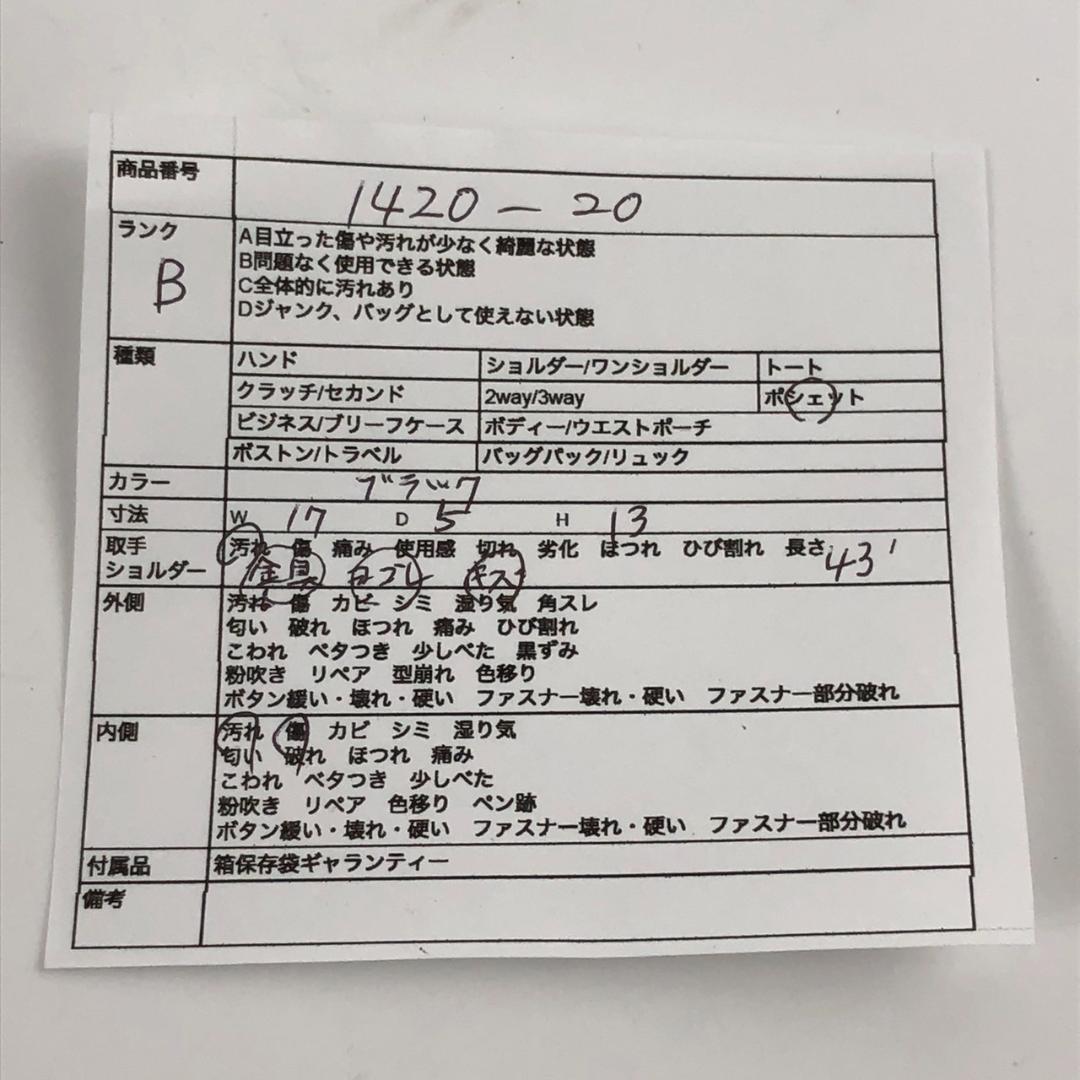 商品番号 1420-20
ランク B
A目立った傷や汚れが少なく綺麗な状態
B問題なく使用できる状態
C全体的に汚れあり
Dジャンク、バッグとして使えない状態
種類 ハンド ショルダー/ワンショルダー トート
クラッチ/セカンド 2way/3way ポシェット
ビジネス/ブリーフケース ボディー/ウエストポーチ
ボストン/トラベル バッグパック/リュック
カラー ブラック
寸法 W 17 D 5 H 13
取手 汚れ 傷 痛み 使用感 切れ 劣化 ほつれ ひび割れ 長さ 43
ショルダー 金具
外側 汚れ 傷 カビ シミ 湿り気 角スレ
匂い 破れ ほつれ 痛み ひび割れ
こわれ ベタつき 少しべた 黒ずみ
粉吹き リペア 型崩れ 色移り
ボタン緩い・壊れ・硬い ファスナー壊れ・硬い ファスナー部分破れ
内側 汚れ 傷 カビ シミ 湿り気
匂い 破れ ほつれ 痛み
こわれ ベタつき 少しべた
粉吹き リペア 色移り ペン跡
ボタン緩い・壊れ・硬い ファスナー壊れ・硬い ファスナー部分破れ
付属品 箱保存袋ギャランティー
備考